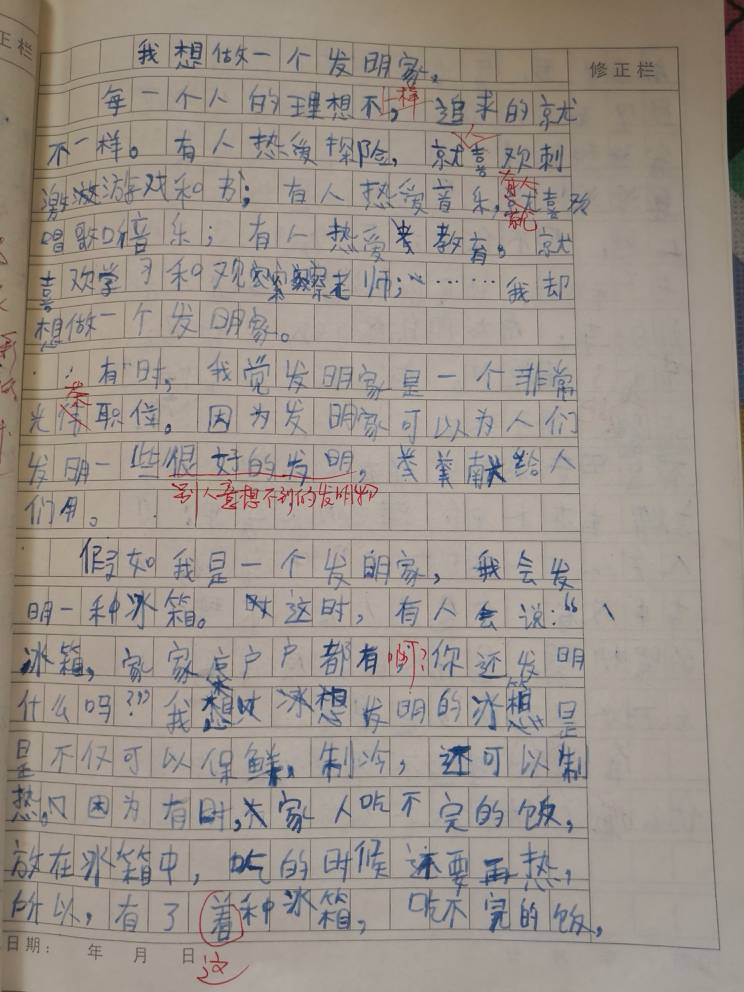 正栏
修正栏
我想做一个发明家。
每一个人的理想不一样，追求的就
不一样。有人热爱探险，就喜欢刺
激游戏和书；有人热爱音乐，有人就喜欢
唱歌和音乐；有人热爱教育，就
喜欢学习和观察老师；……我却
想做一个发明家。
有时，我觉发明家是一个非常
光荣职位。因为发明家可以为人们
发明一些很好的发明，献给人
别人意想不到的发明物
们用。
假如我是一个发明家，我会发
明一种冰箱。这时，有人会说：“
冰箱，家家户户都有啊？你还发明
什么吗？”我想发明的冰箱是
是不仅可以保鲜，制冷，还可以制
热。因为有时，大家人吃不完的饭，
放在冰箱中，吃的时候还要再热，
所以，有了着种冰箱，吃不完的饭，
日期： 年 月 日
这